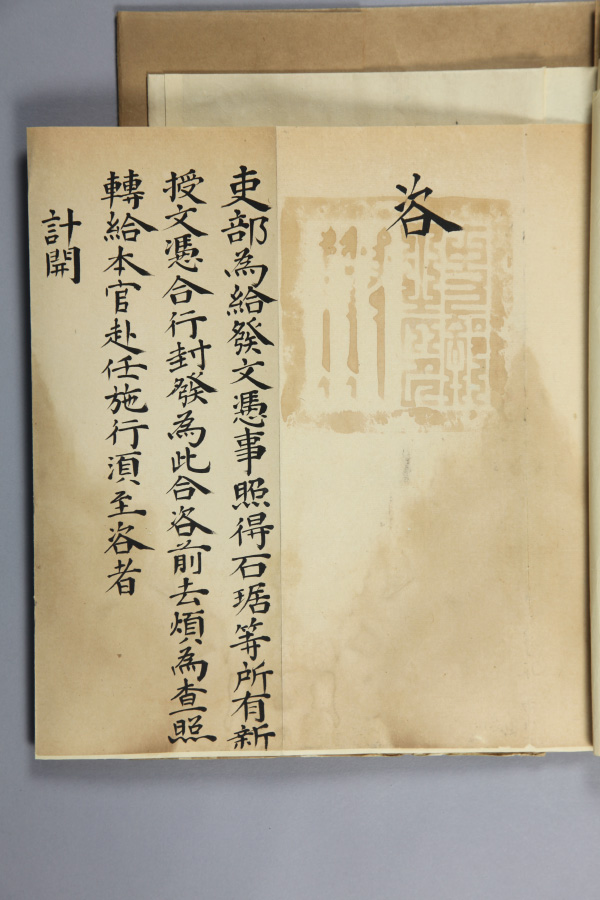 咨
吏部為給發文憑事照得石琚等所有新
授文憑合行封發為此合咨前去煩為查照
轉給本官赴任施行湏至咨者
計開